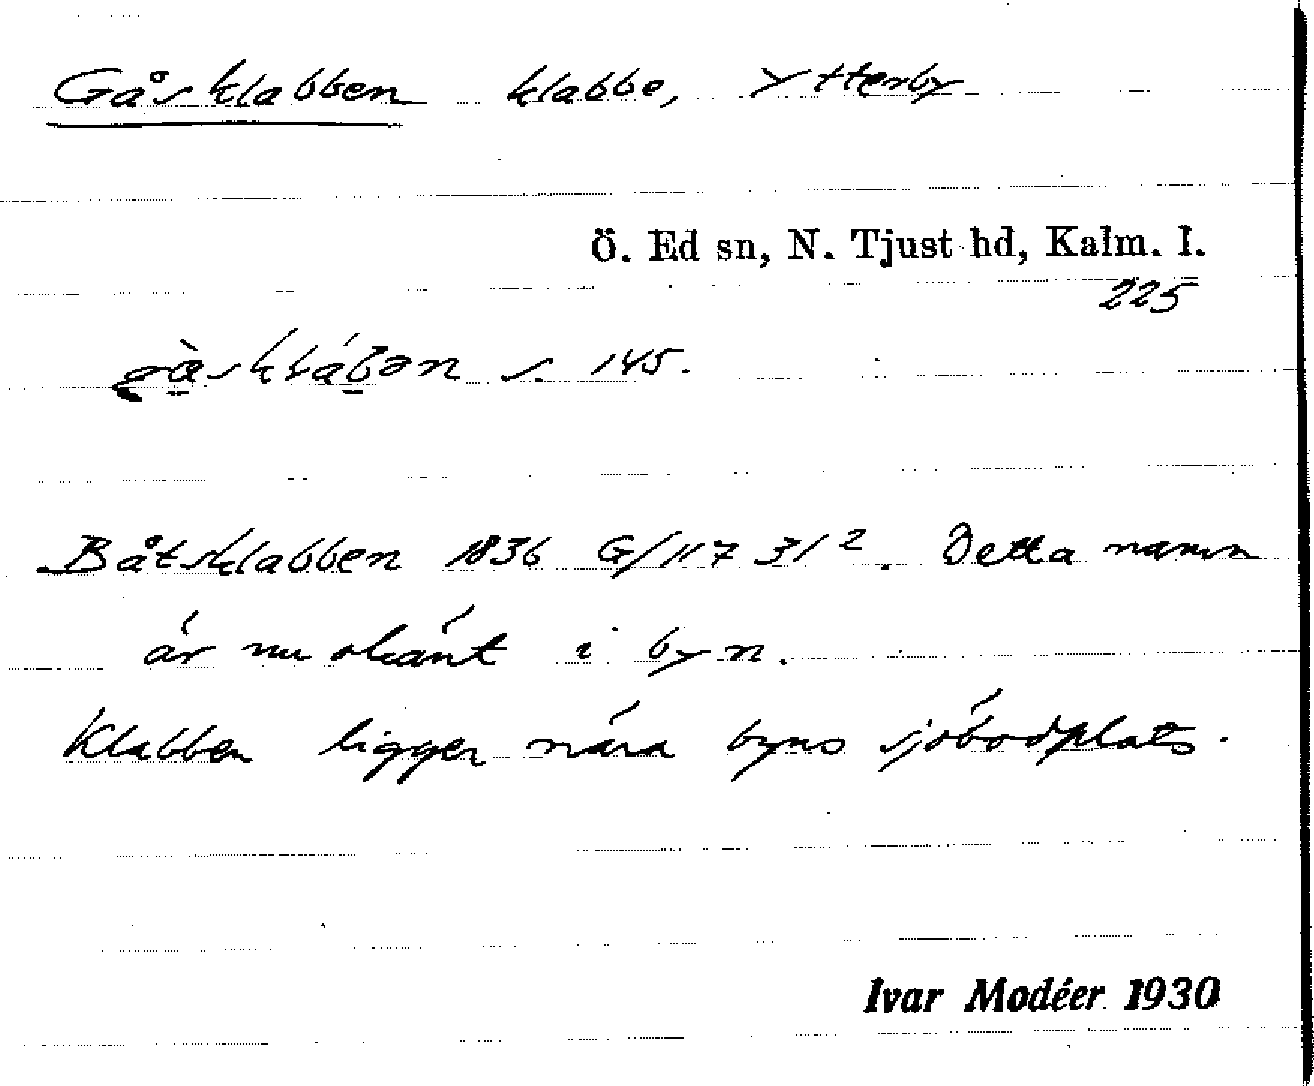 Gåsklabben klabbe, Ytterby
Ö. Ed sn, N. Tjust hd, Kalm. l.
225
s. 145.
Båtsklabben 1836 G/117 31². Detta namn
är nu okänt i byn.
Klabben ligger nära byns sjöbodplats.
Ivar Modéer 1930